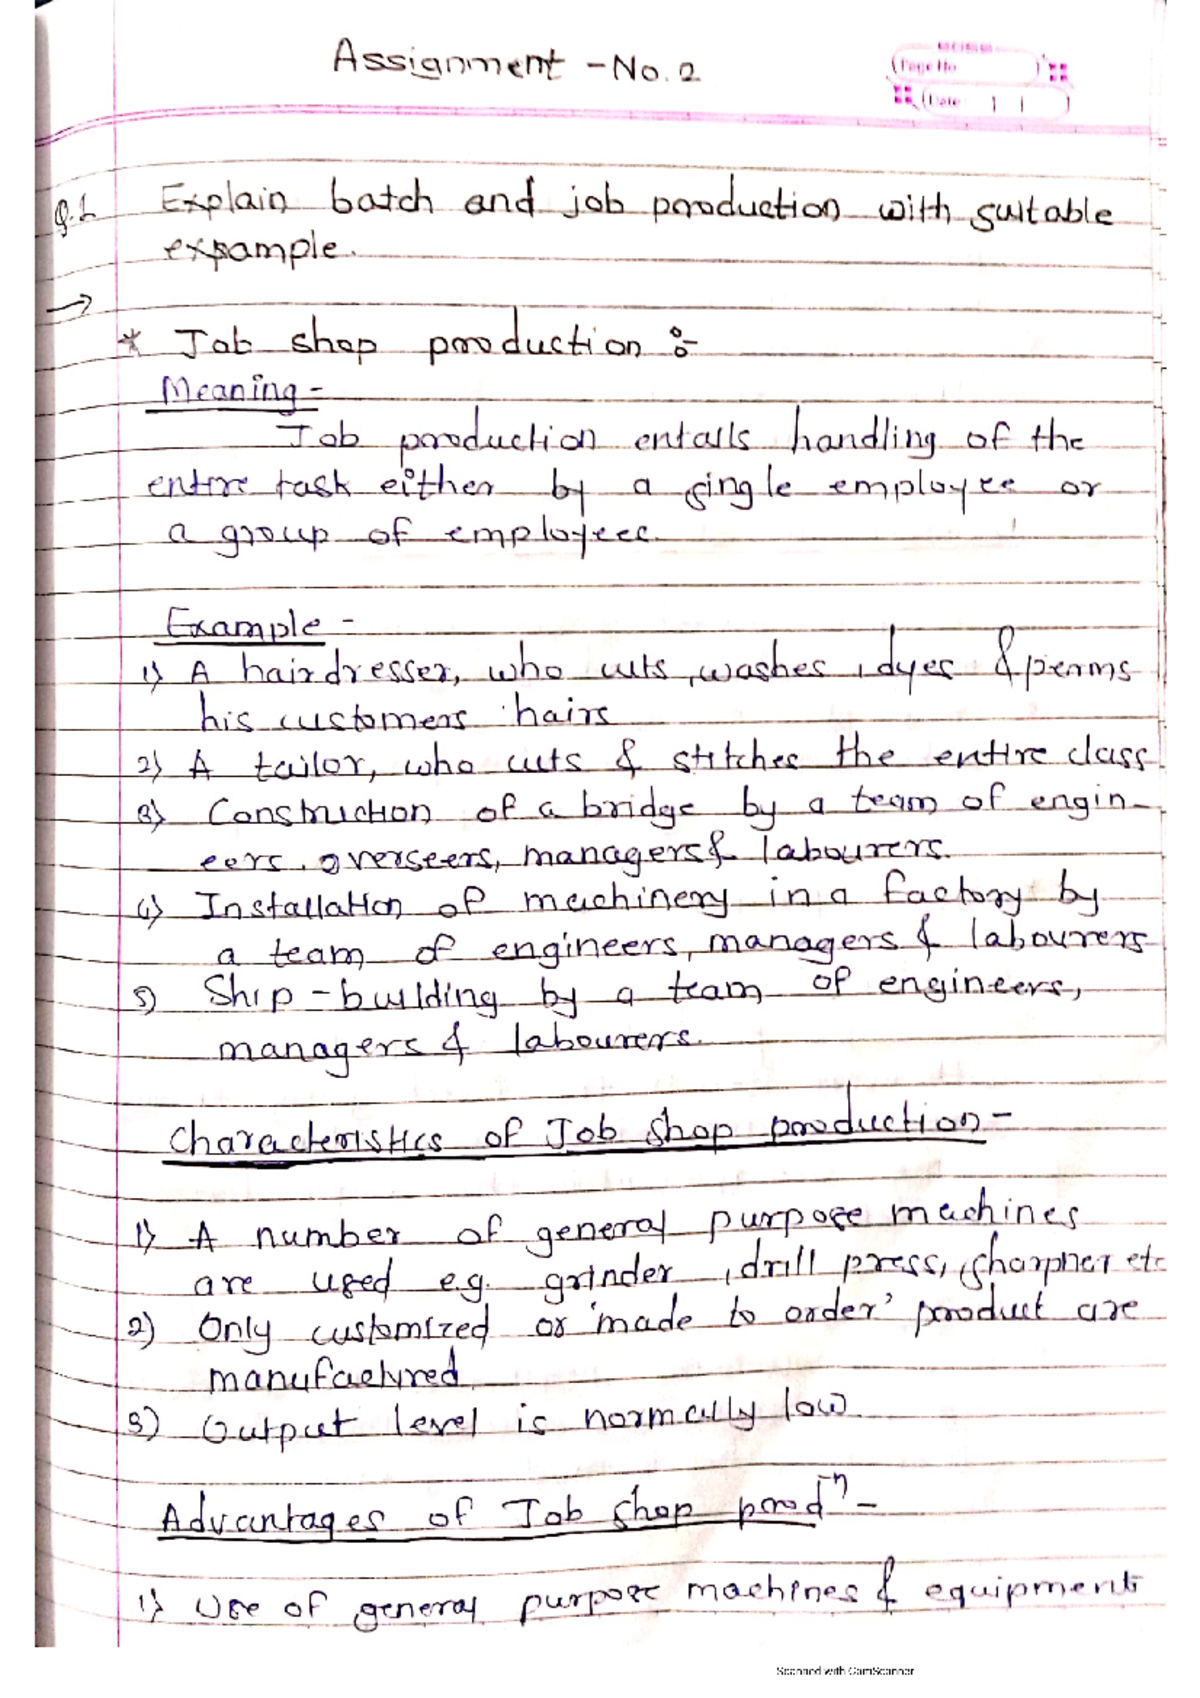 Assignment - No. 2
Page No
Date
Q.1 Explain batch and job production with suitable
example.
→
* Job shop production :-
Meaning -
Job production entails handling of the
entire task either by a single employee or
a group of employees.
Example -
1) A hairdresser, who cuts, washes, dyes & perms
his customers hairs
2) A tailor, who cuts & stitches the entire class.
3) Construction of a bridge by a team of engin-
eers, overseers, managers & labourers.
4) Installation of machinery in a factory by
a team of engineers, managers & labourers
5) Ship-building by a team of engineers,
managers & labourers.
Characteristics of Job shop production -
1) A number of general purpose machines
are used e.g. grinder, drill press, sharpner etc
2) Only customized or 'made to order' product are
manufactured
3) Output level is normally low.
Advantages of Job shop prodⁿ -
1) Use of general purpose machines & equipment
Scanned with CamScanner